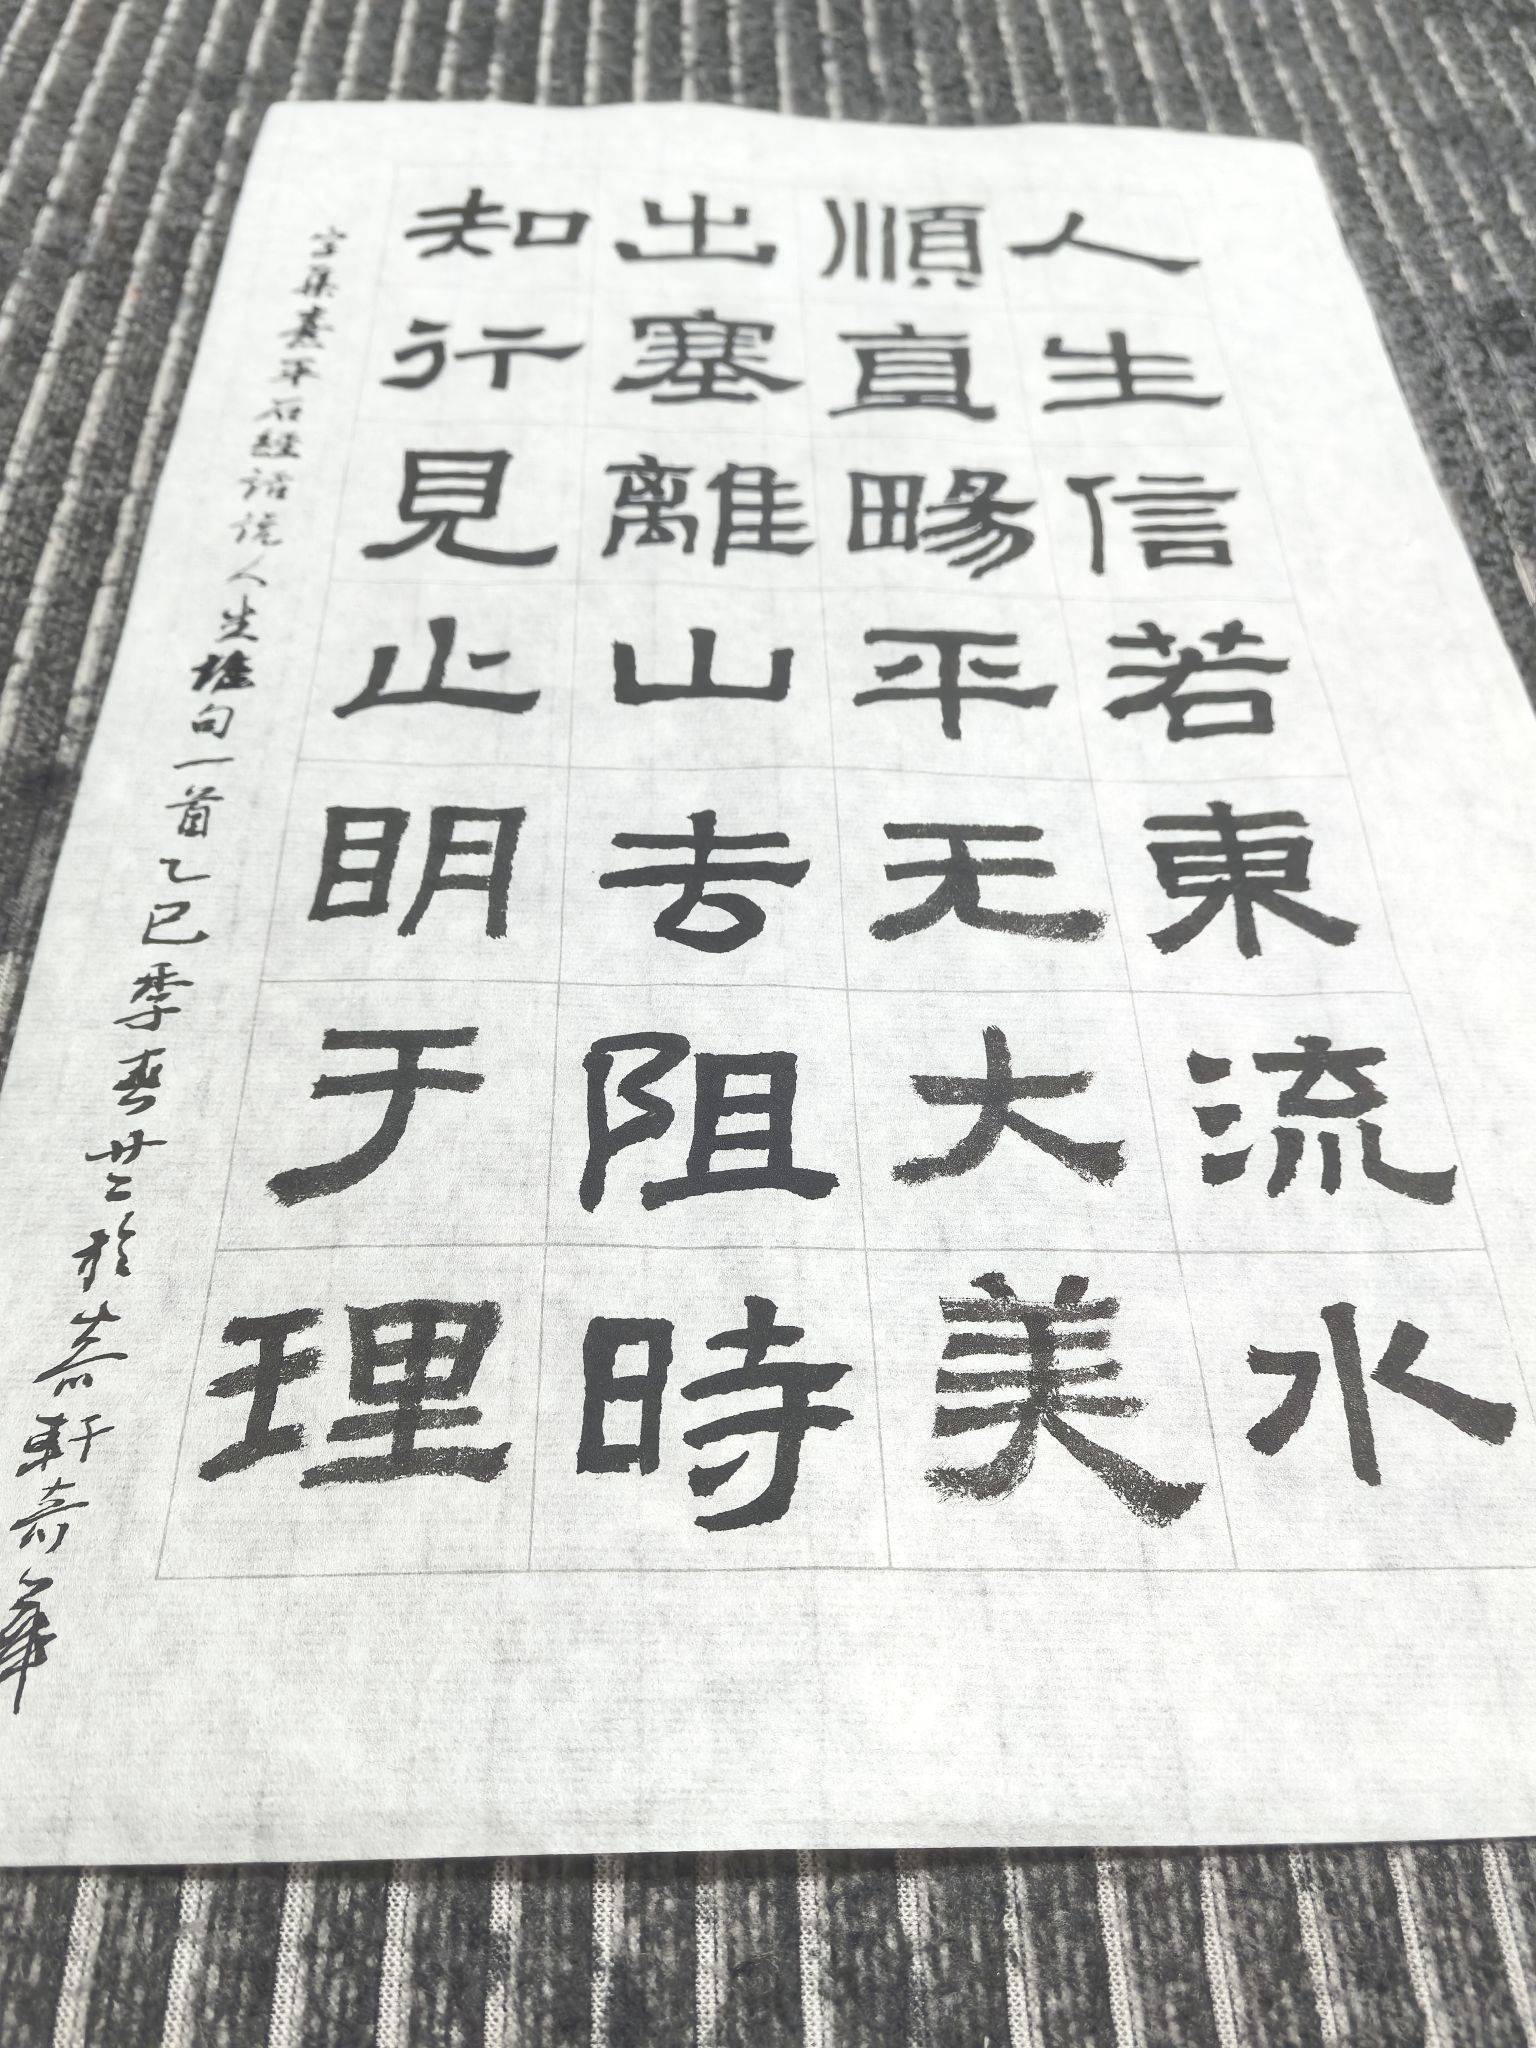 人生信若東流水
順直暢平无大美
出塞離山去阻時
知行見止明于理
字集熹平石經話說人生絕句一首乙巳季春廿二於嵩軒嵩華